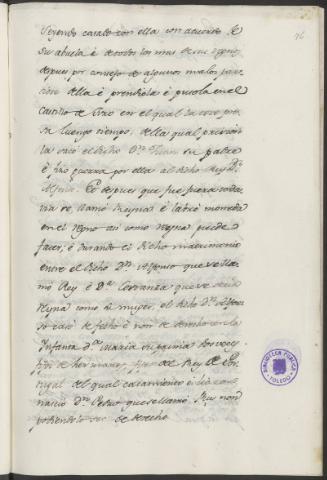 76
Seyendo casado con ella con acuerdo de
Su abuela é de todos los mas de su regno,
despues por consejo de algunos malos
della é prendiola é pusola en el
Castillo de Toro en el qual la tovo pre-
sa luengo tiempo, della qual
la sacó el dicho Dn. Juan su padre
é fizo guerra por ella al dicho Rey Dn.
Alfonso. E despues que fue fuera toda-
via se llamó Reyna é labró moneda
en el regno asi como regna puede
facer; é durando el dicho matrimonio
entre el dicho Dn. Alfonso que se lla-
mó Rey é Da. Costanza que se decia
Reyna como su muger, el dicho Dn. Alfonso
se casó de fecho é non de derecho con la
Infanta Da. Maria su prima dos veces
fijos de hermanos, fija del Rey de Por-
tugal del qual casamiento
nació Dn. Pedro que se llamó Rey non
podiendolo ser de derecho
BIBLIOTECA PUBLICA
TOLEDO